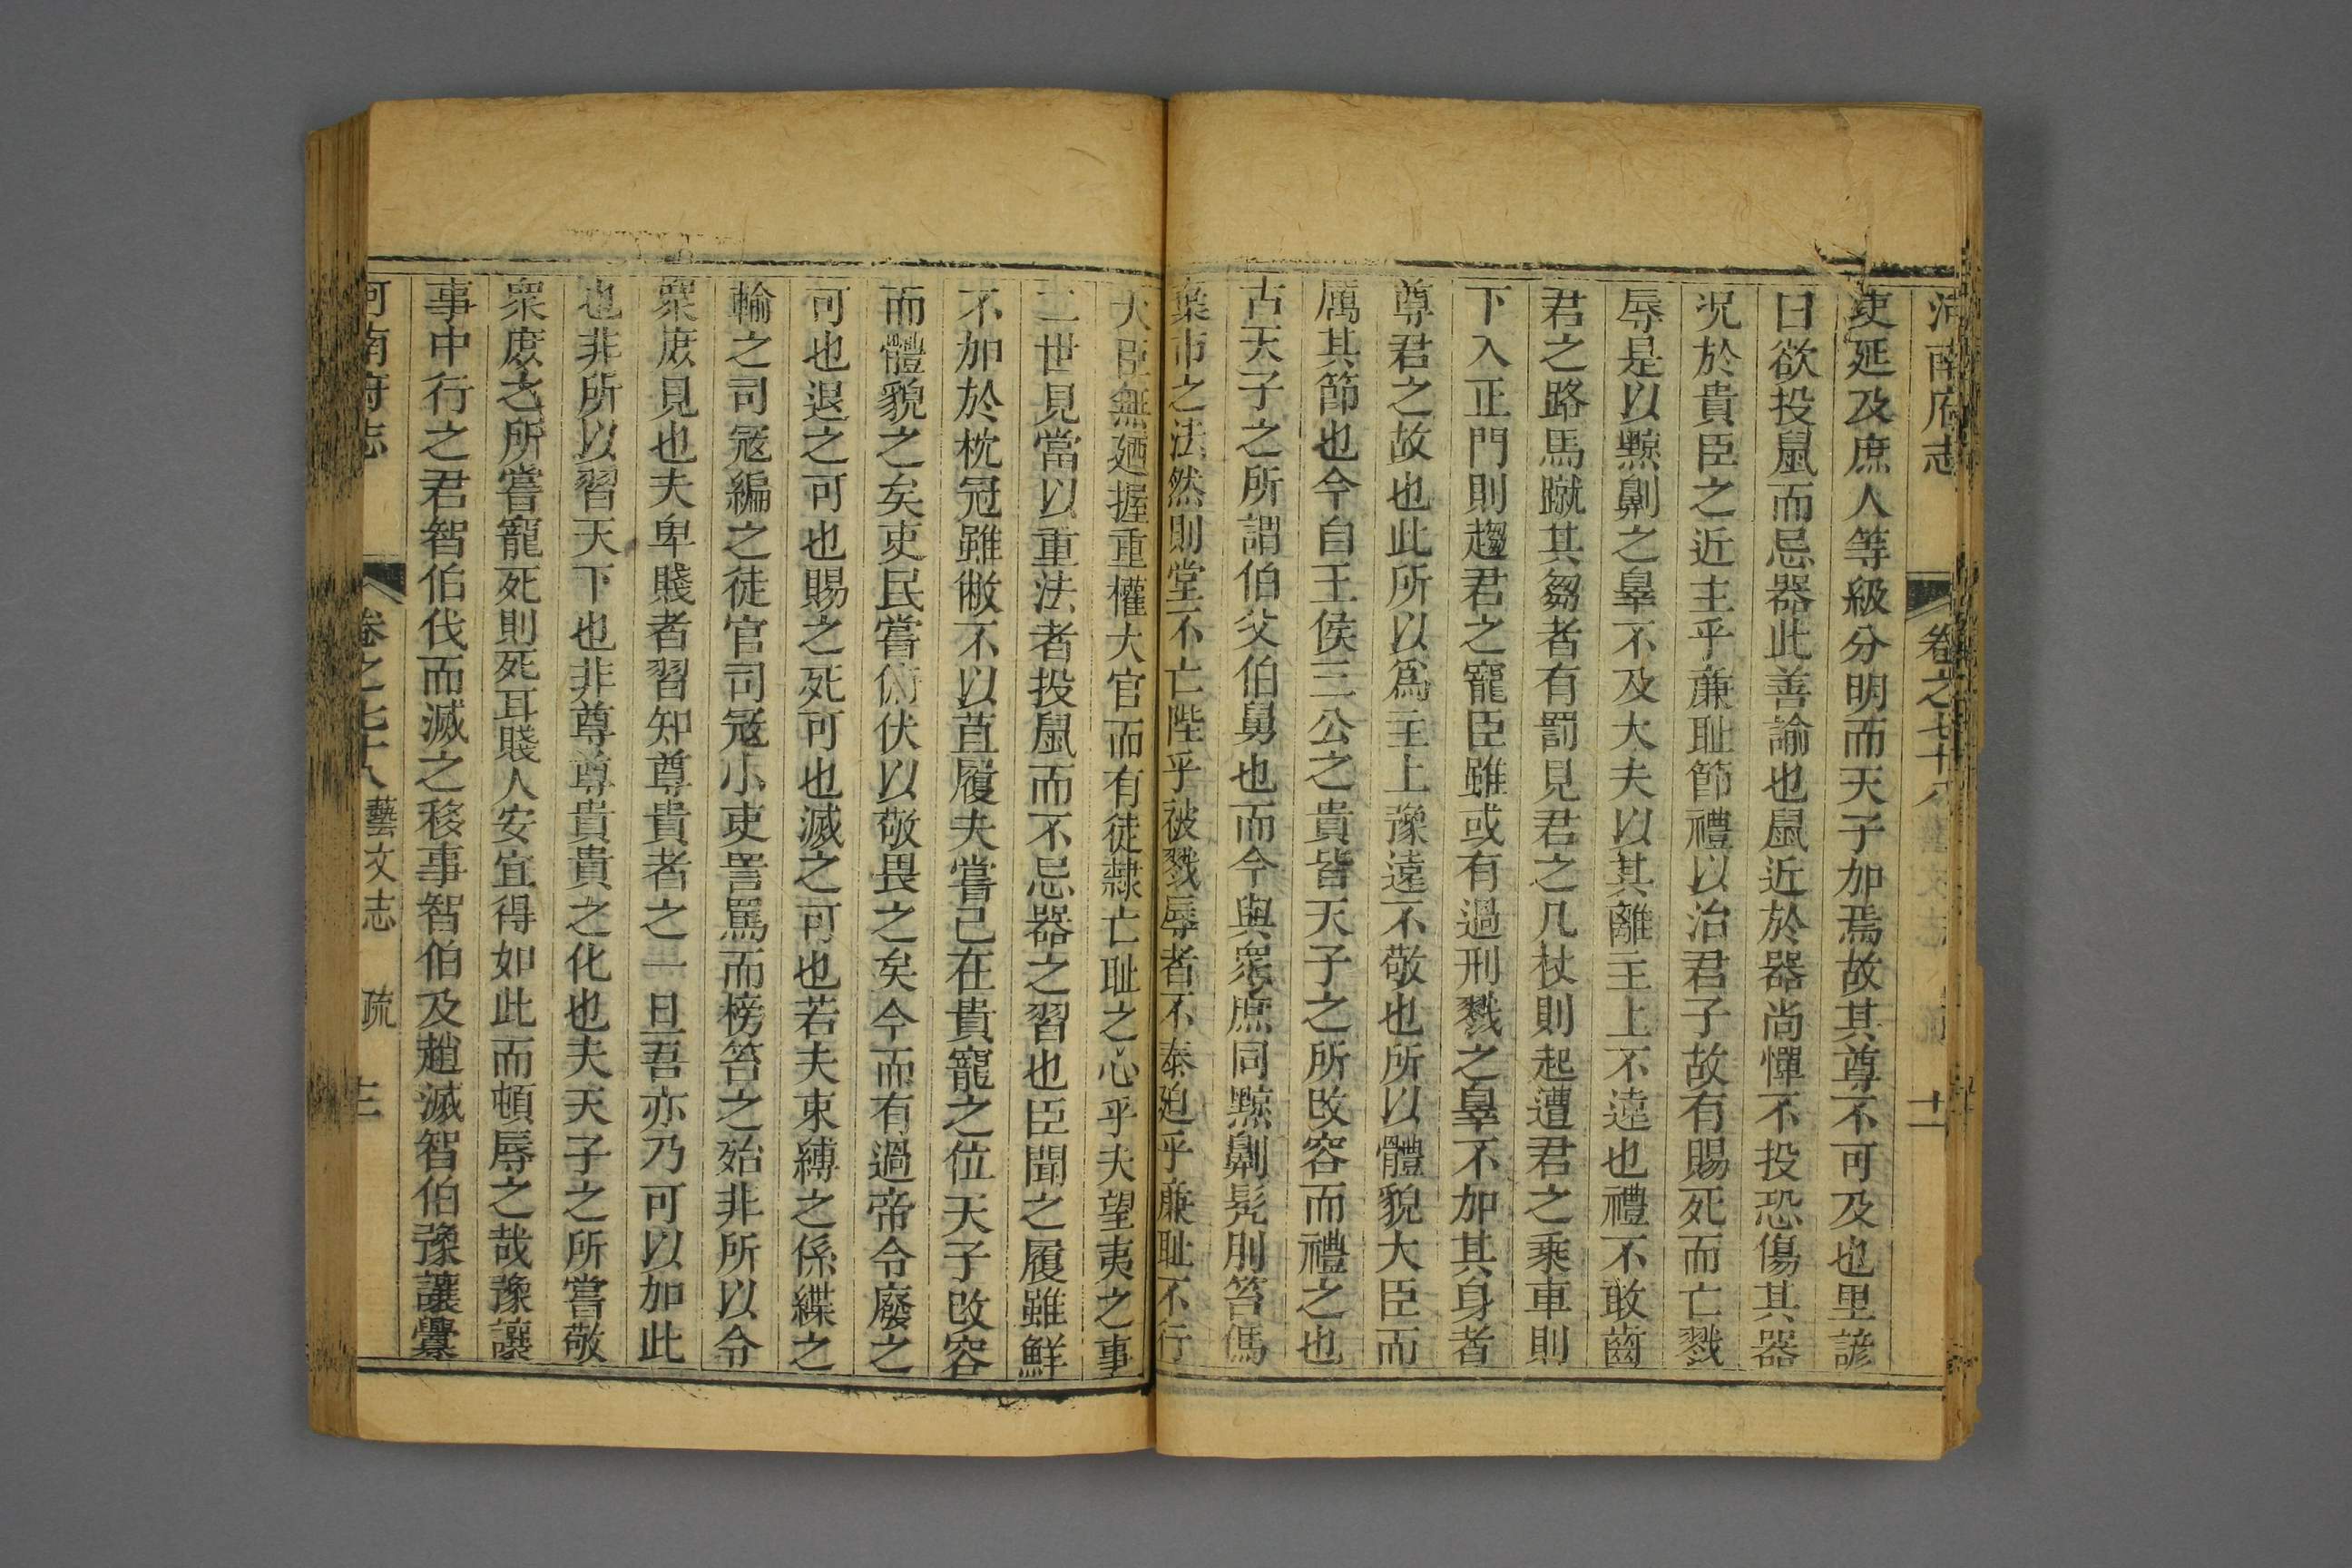 河南府志 卷之七十八 十一
吏延及庶人等級分明而天子加焉故其尊不可及也里諺
曰欲投鼠而忌器此善諭也鼠近於器尚憚不投恐傷其器
况於貴臣之近主乎亷耻節禮以治君子故有賜死而亡戮
辱是以黥劓之辠不及大夫以其離主上不遠也禮不敢齒
君之路馬蹴其芻者有罰見君之几杖則起遭君之乘車則
下入正門則趨君之寵臣雖或有過刑戮之辠不加其身者
尊君之故也此所以爲主上豫遠不敬也所以體貌大臣而
厲其節也今自王侯三公之貴皆天子之所改容而禮之也
古天子之所謂伯父伯舅也而今與衆庶同黥劓髡刖笞傌
棄市之法然則堂不亡陛乎被戮辱者不泰迫乎亷耻不行
大臣無廼握重權大官而有徒隸亡耻之心乎夫望夷之事
二世見當以重法者投鼠而不忌器之習也臣聞之履雖鮮
不加於枕冠雖敝不以苴履夫嘗已在貴寵之位天子改容
而體貌之矣吏民嘗俯伏以敬畏之矣今而有過帝令廢之
可也退之可也賜之死可也滅之可也若夫束縛之係緤之
輸之司寇編之徒官司寇小吏詈罵而榜笞之殆非所以令
衆庶見也夫卑賤者習知尊貴者之一旦吾亦乃可以加此
也非所以習天下也非尊尊貴貴之化也夫天子之所嘗敬
衆庶之所嘗寵死則死耳賤人安宜得如此而頓辱之哉豫讓
事中行之君智伯伐而滅之移事智伯及趙滅智伯豫讓釁
河南府志 卷之七十八 藝文志 疏 十二